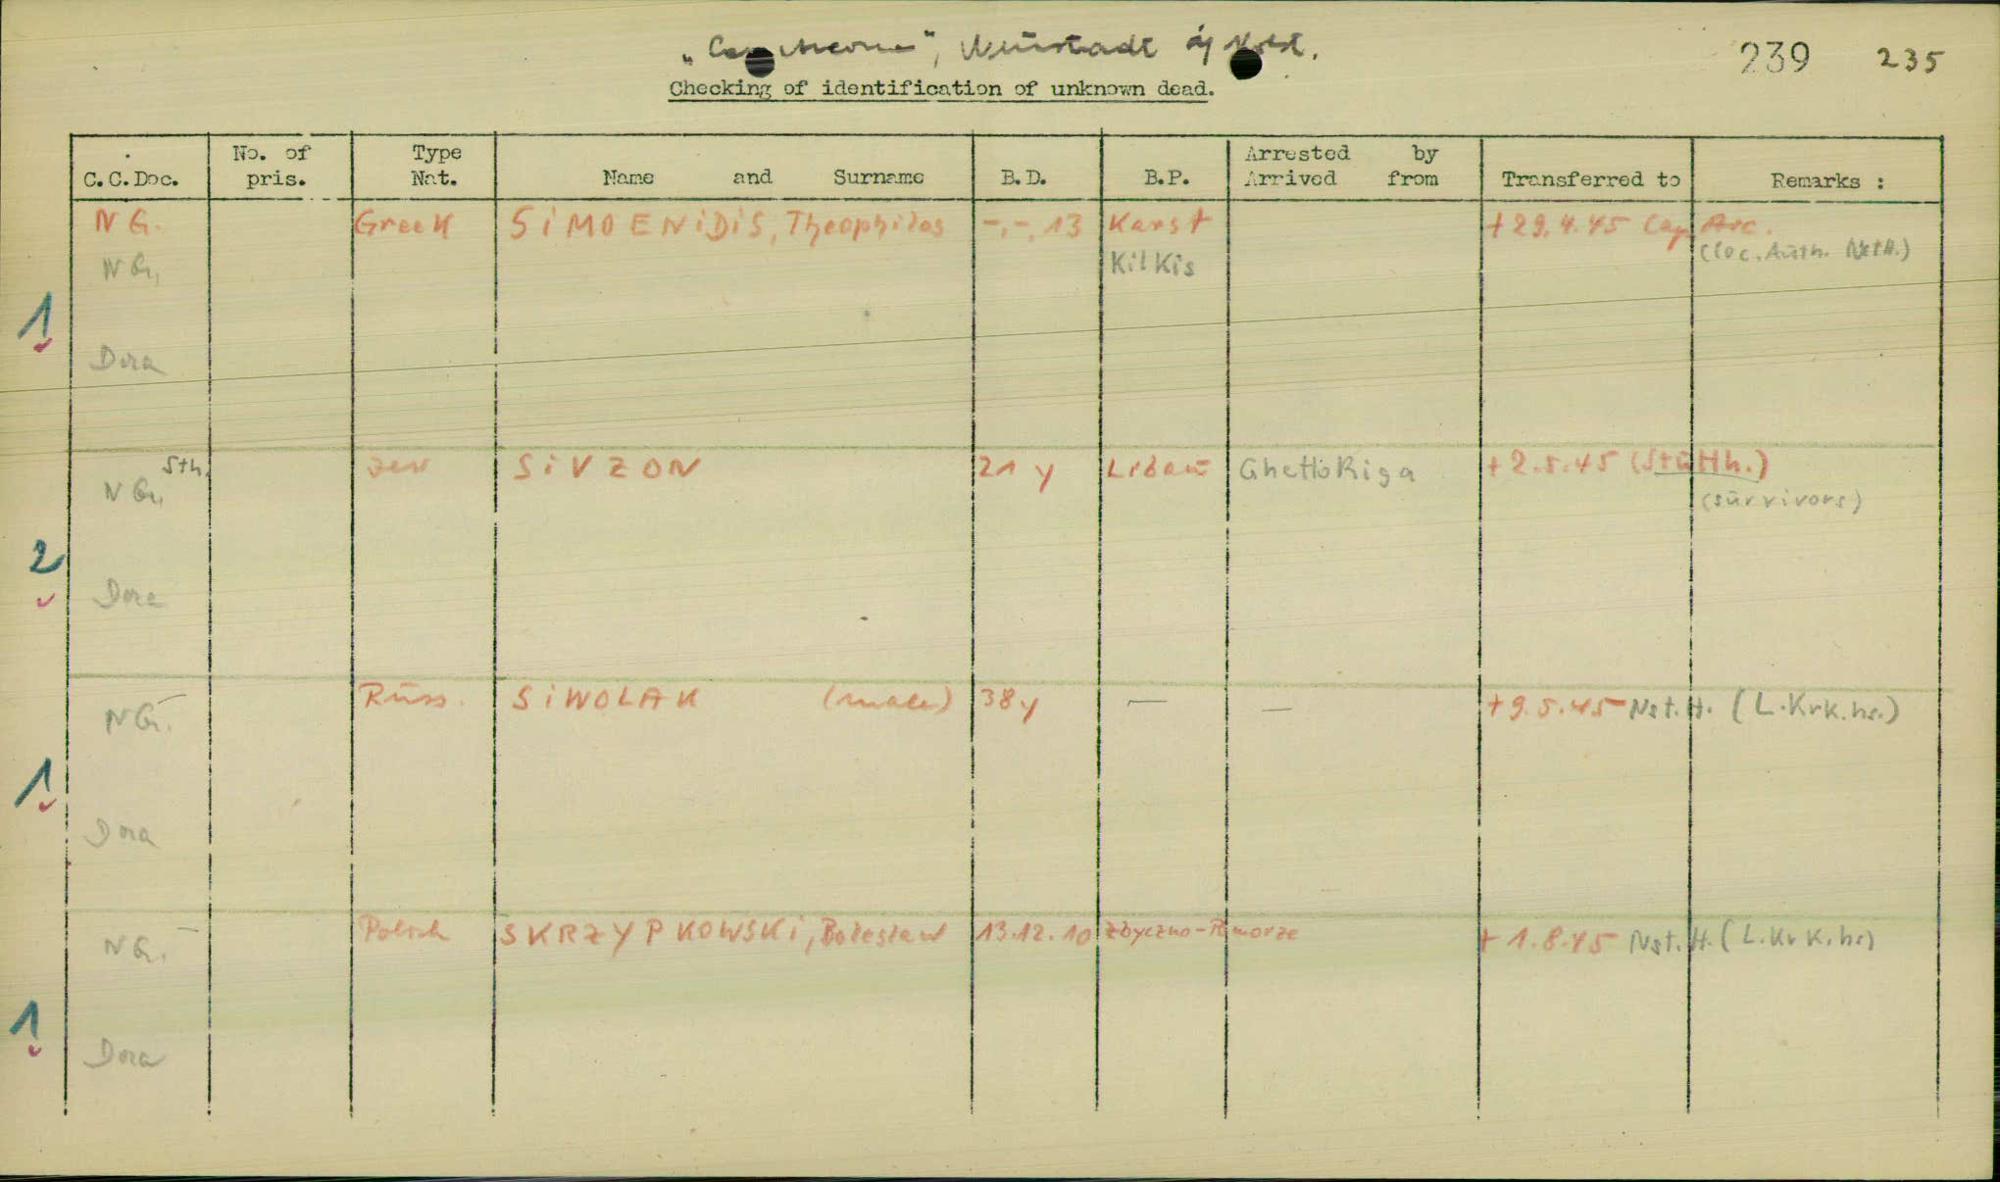 "Cap Arcona", Neustadt i/Holst.
239 235
Checking of identification of unknown dead.
C.C.Doc. No. of pris. Type Nat. Name and Surname B.D. B.P. Arrested by Arrived from Transferred to Remarks :
NG. Greek SiMOENiDiS, Theophilos -.-.13 Karst +29.4.45 Cap Arc.
NG. KilKis (loc. Auth. NstH.)
1
Dora
NG. Sth. Jew SiVZON 21 y Libau Ghetto Riga +2.5.45 (StuHh.)
(survivors)
2
Dora
NG. Russ. SiWOLAK (male) 38 y — — +9.5.45 Nst.H. (L.Krk.hs.)
1
Dora
NG. Polish SKRZYPKOWSKi, Boleslaw 13.12.10 Zbyczno-Pomorze +1.8.45 Nst.H. (L.Krk.hs)
1
Dora